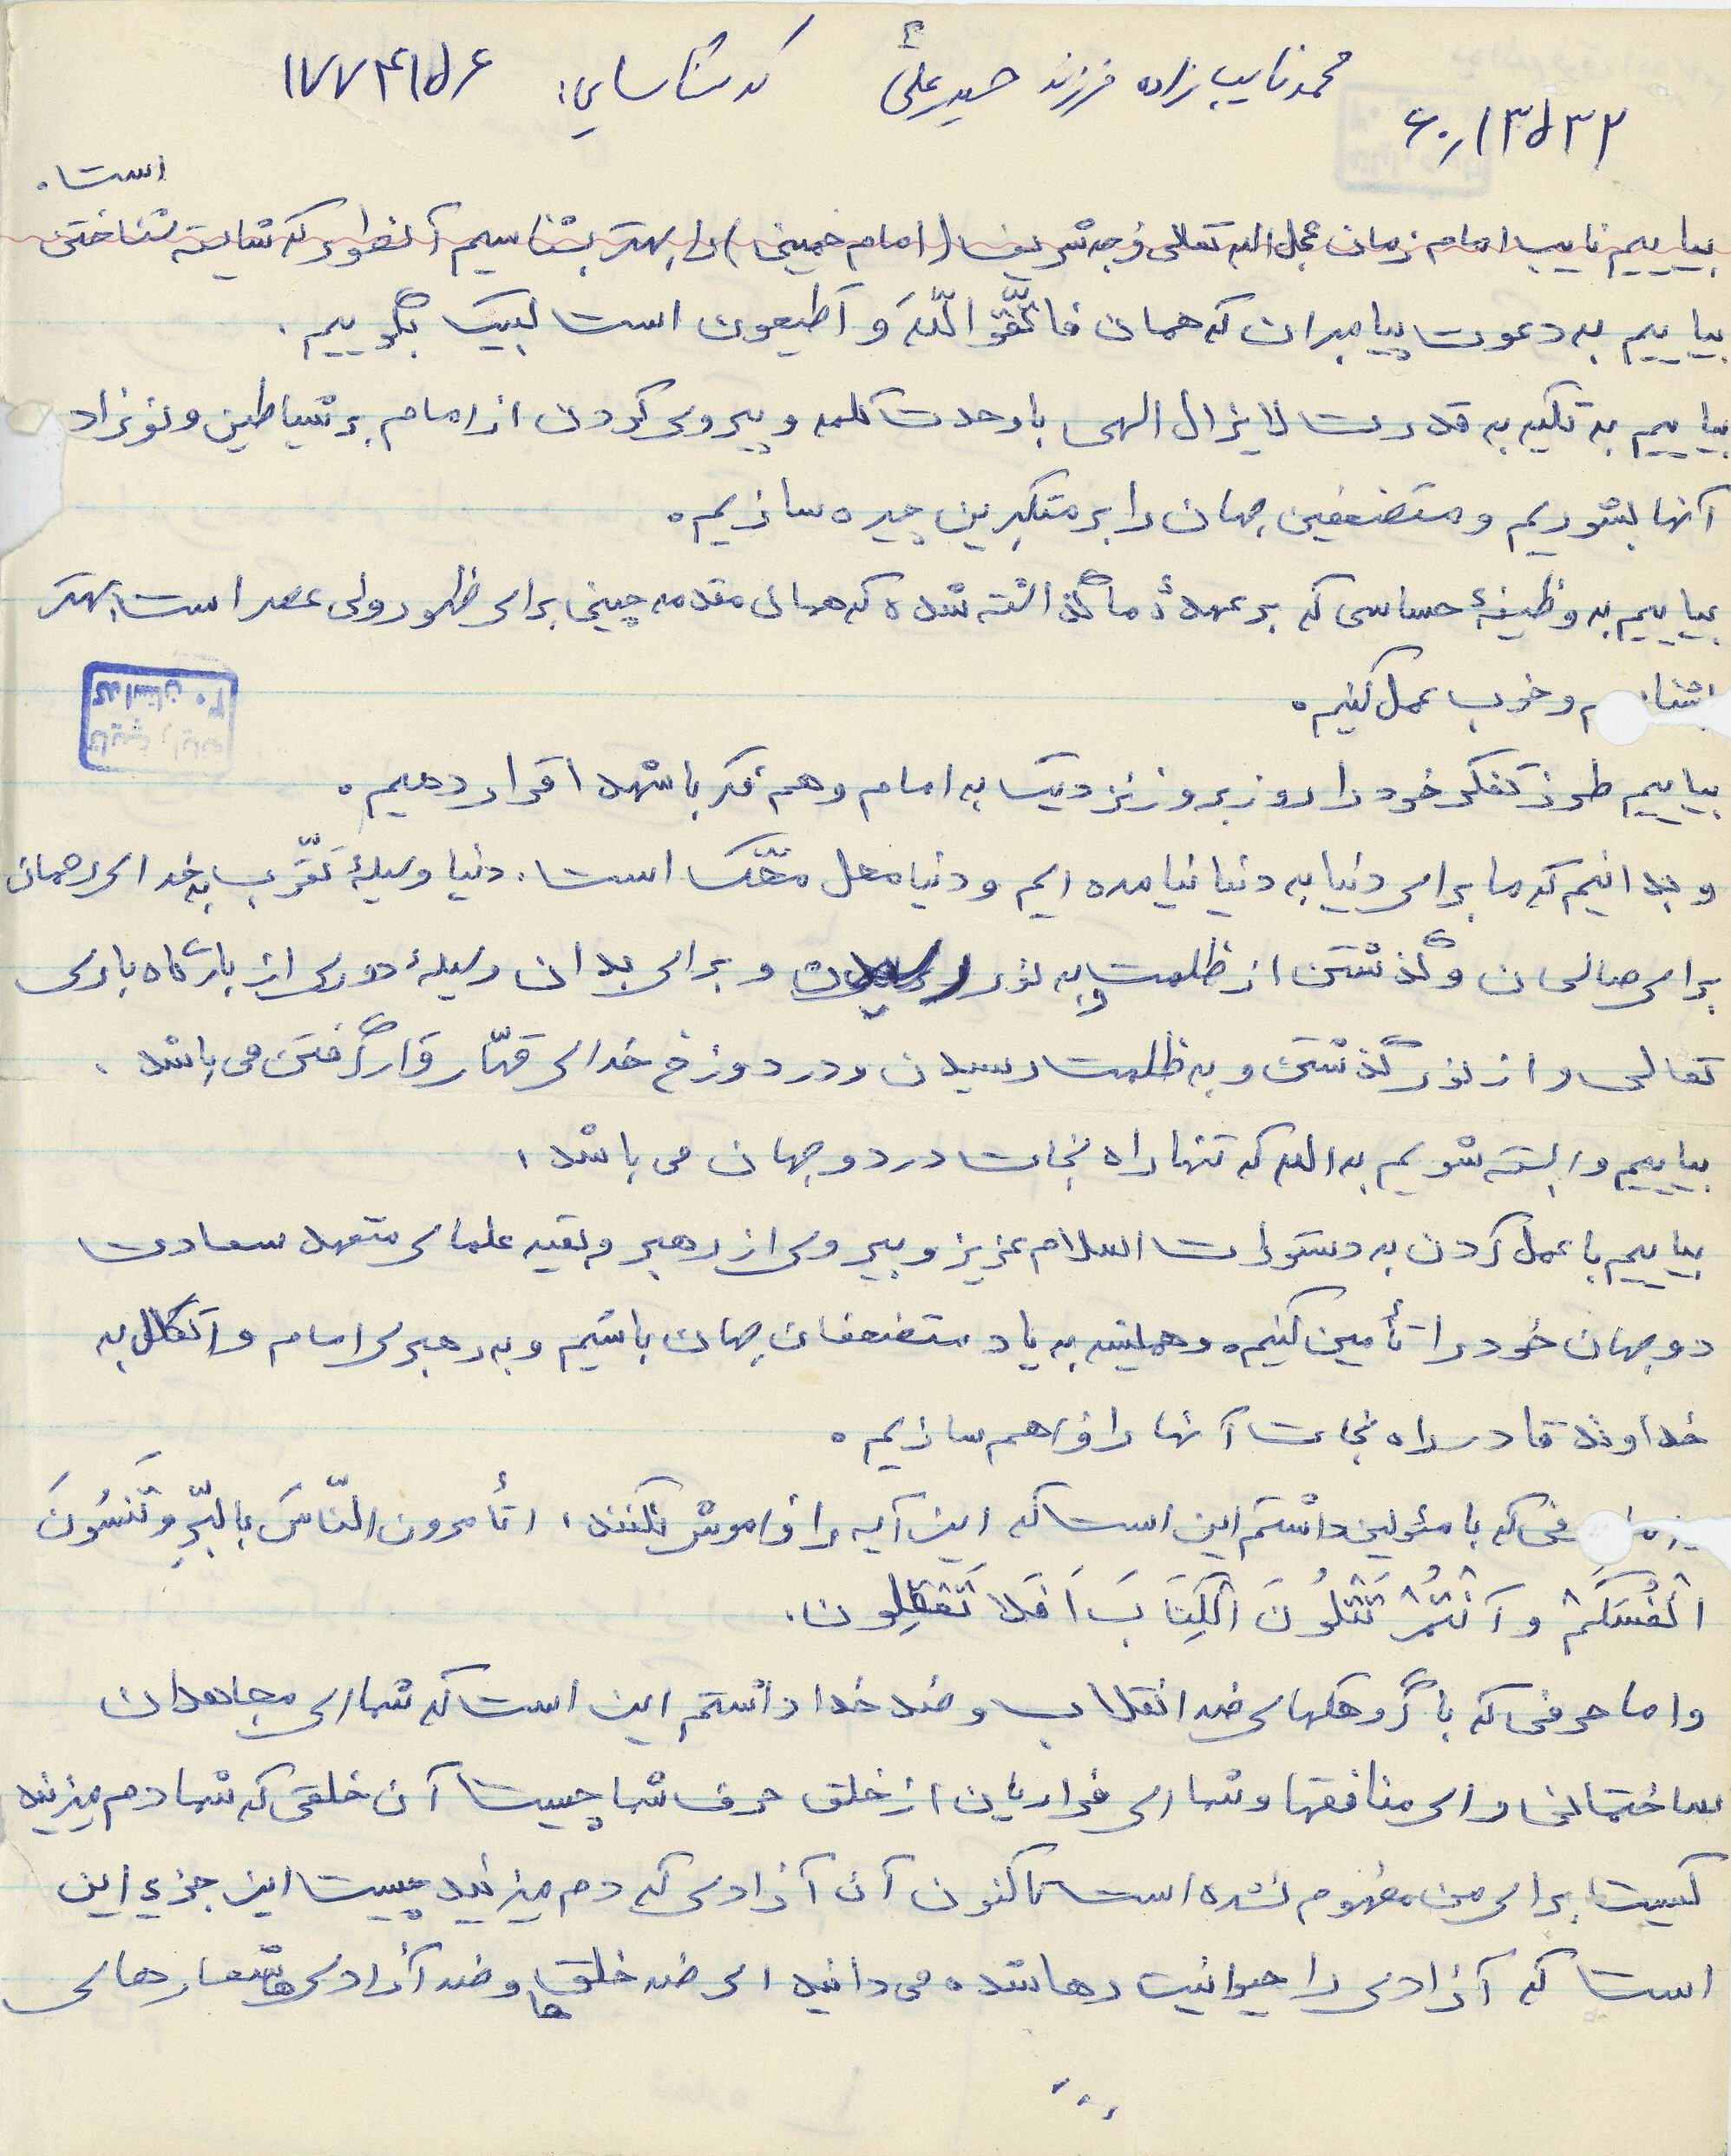 محمد نایب زاده فرزند حیدرعلی کد شناسایی: ۱۷۷۴۱۵۶
۶۰/۱۳۵۳۲
بیاییم نایب امام زمان عجل الله تعالی فرجه شریف (امام خمینی) را بهتر بشناسیم آنطور که شایسته شناختن است.
بیاییم به دعوت پیامبران که همان فاتَّقُّوالّلهَ وَ اَطیعون است لبیک بگوییم.
بیاییم به تکیه به قدرت لایزال الهی با وحدت کلمه و پیروی کردن از امام بر شیاطین و نونژاد
آنها بشوریم و مستضعفین جهان را بر متکبرین چیره سازیم.
بیاییم به وظیفهٔ حساسی که بر عهدهٔ ما گذاشته شده که همان مقدمه چینی برای ظهور ولی عصر است بهتر
م و خوب عمل کنیم.
بیاییم طرز تفکر خود را روز بروز نزدیک به امام و هم فکر با شهدا قرار دهیم.
و بدانیم که ما برای دنیا به دنیا نیامده ایم و دنیا محل محّک است. دنیا وسیلهٔ تقّرب به خدای رحمان
برای صالحان و گذشتن از ظلمت و به نور رسیدن و برای بدان وسیلهٔ دوری از بارگاه باری
تعالی و از نور گذشتن و به ظلمت رسیدن و در دوزخ خدای قهّار قرار گرفتن می باشد.
بیاییم وابسته شویم به الله که تنها راه نجات در دو جهان می باشد.
بیاییم با عمل کردن به دستورات اسلام عزیز و پیروی از رهبر و بقیه علمای متعهد سعادت
دو جهان خود را تأمین کنیم. و همیشه به یاد مستضعفان جهان باشیم و به رهبری امام و اتکال به
خداوند قادر راه نجات آنها را فراهم سازیم.
فی که با مسئولین داشتم این است که این آیه را فراموش نکنند، اتأمرون النّاسَ بِالبِّرِ وَ تَنسُونَ
اَنْفُسَکُمْ وَ اَنْتُمْ تَتْلُونَ اَلکِتابَ اَفَلا تَعْقِلِون.
و اما حرفی که با گروهکهای ضد انقلاب و ضد خدا داشتم این است که شما ای مجاهدان
ساختمانی و ای منافقها و شما ای فراریان از خلق حرف شما چیست آن خلقی که شما دم میزنید
کیست برای من مفهوم نشده است تاکنون آن آزادی که دم میزنید چیست این جزء این
است که آزادی را حیوانیت رها شده می دانید ای ضد خلق ها و ضد آزادی ها شعارهای